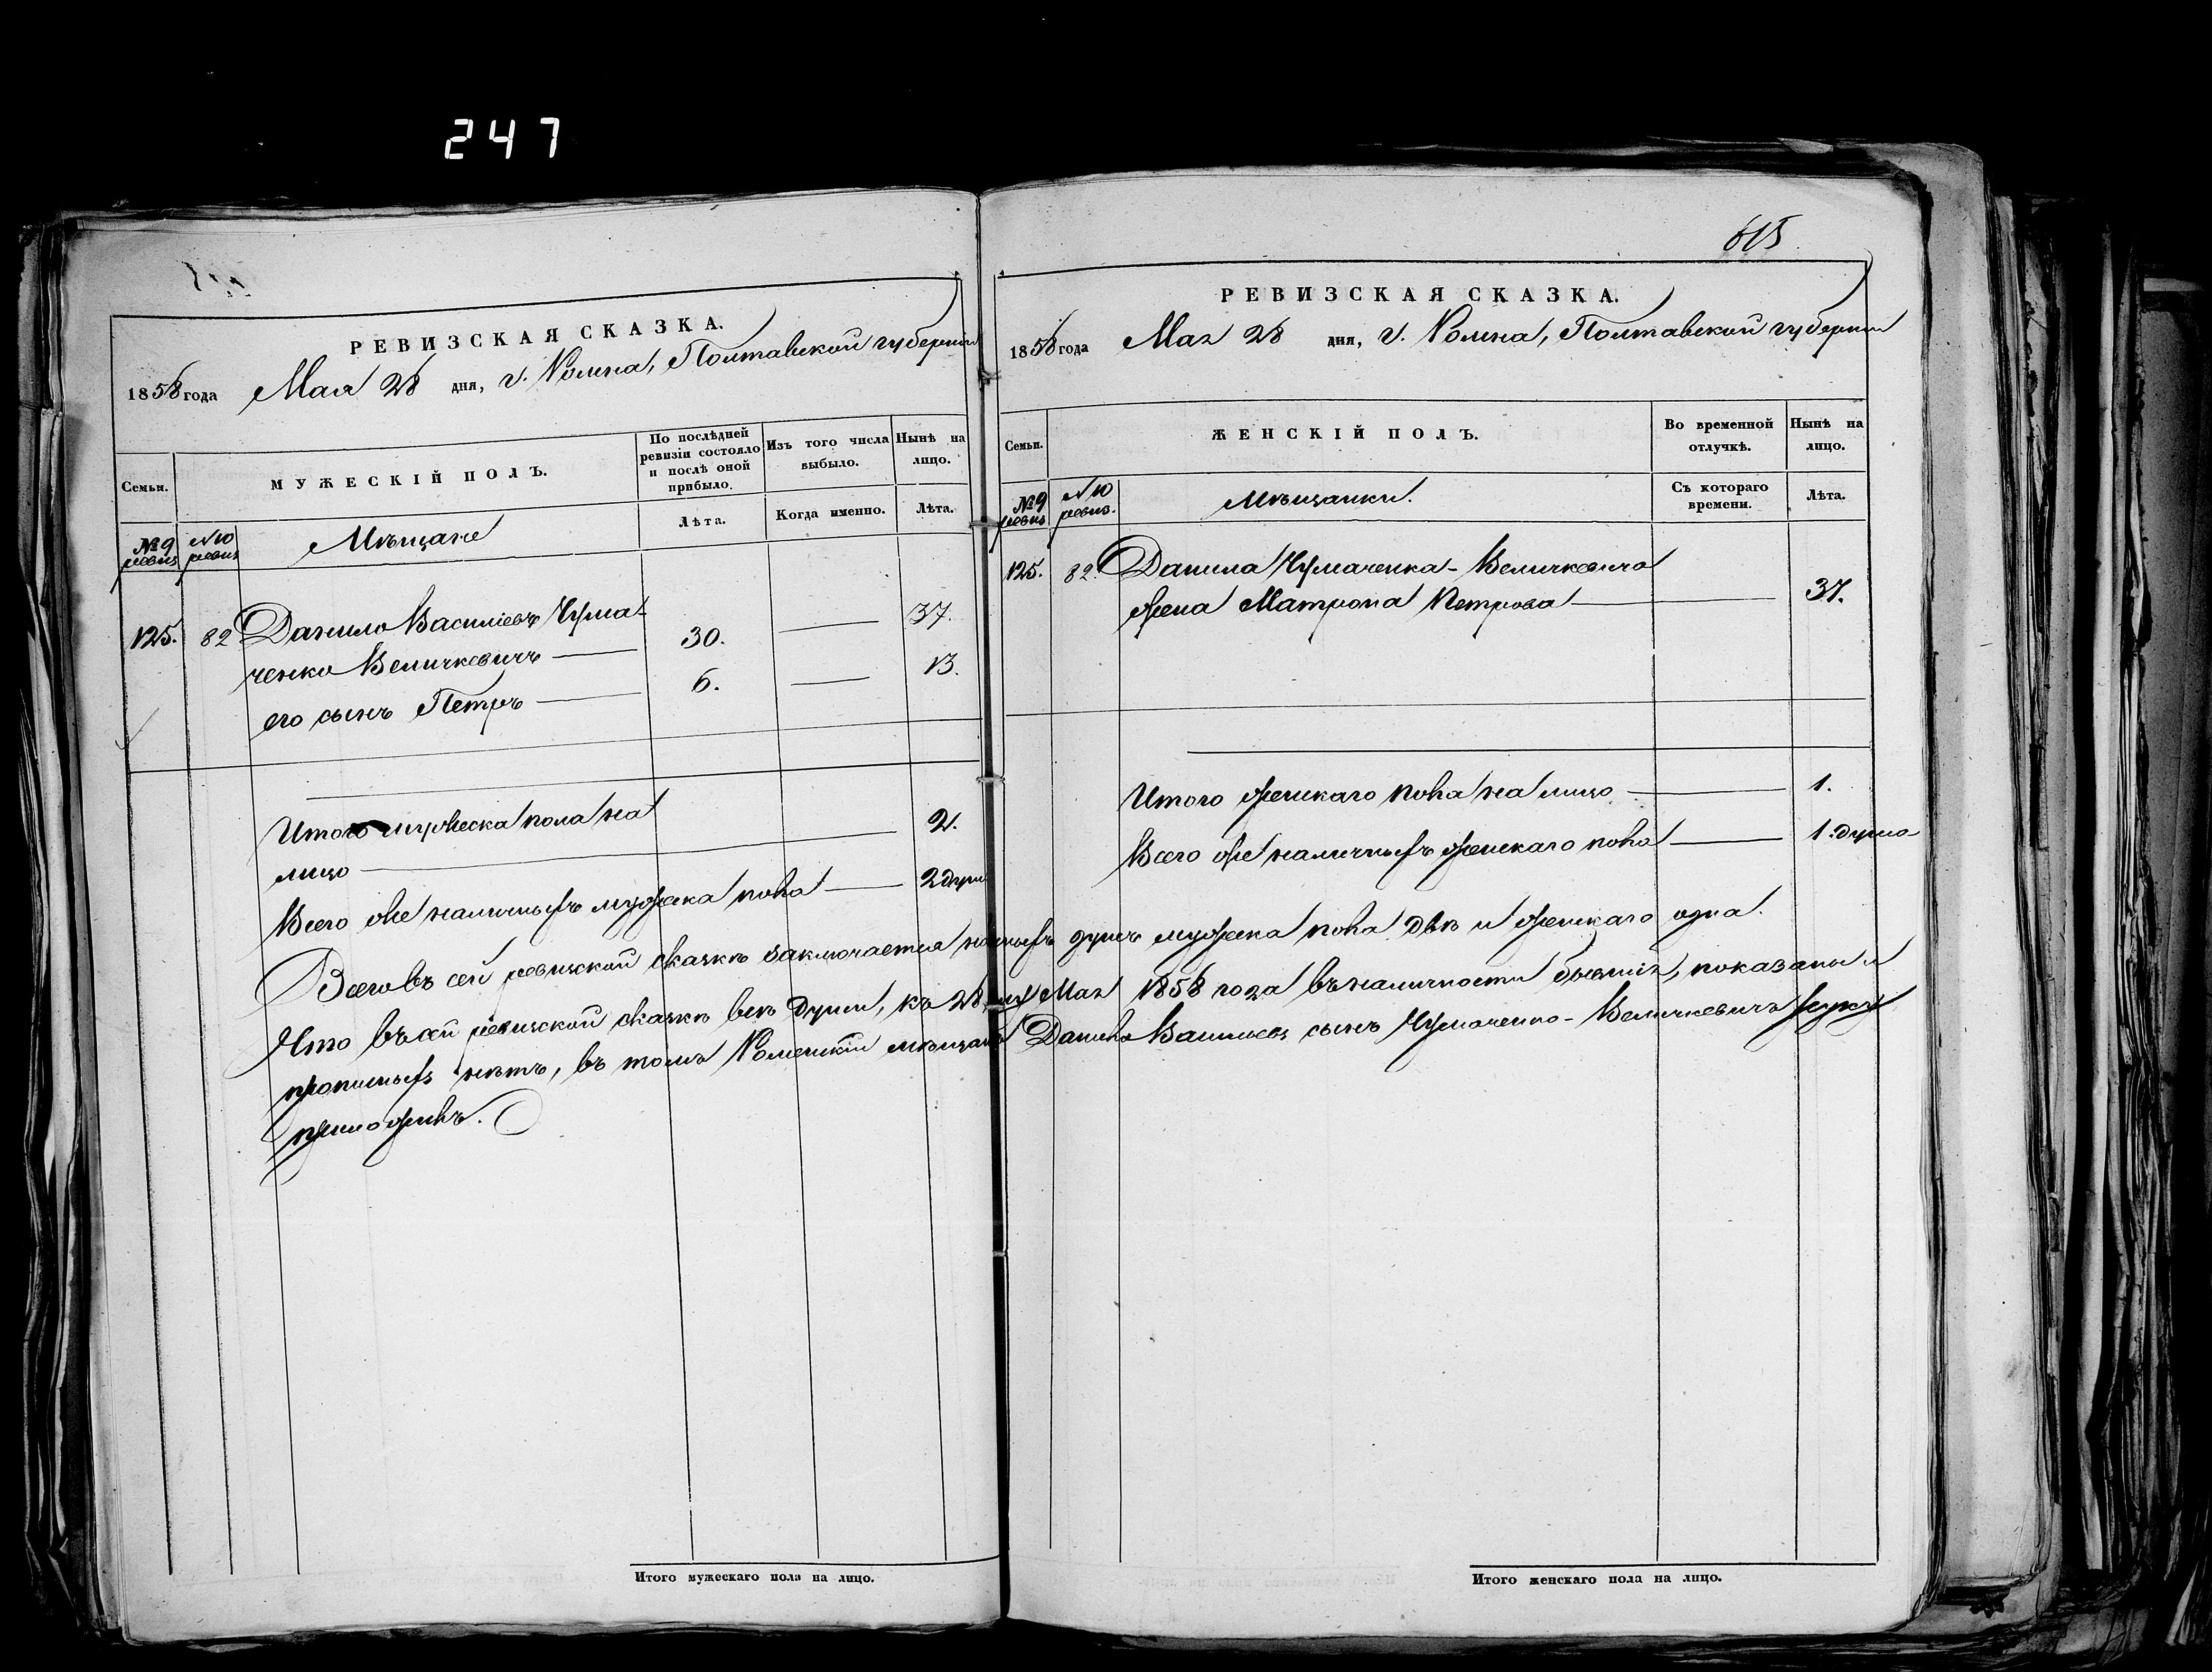 247
РЕВИЗСКАЯ СКАЗКА.
1858 года Мая 28 дня, г. Ромна, Полтавской губерніи
Семьи.
МУЖЕСКІЙ ПОЛЪ.
По послѣдней ревизіи состояло и послѣ оной прибыло.
Изъ того числа выбыло.
Нынѣ на лицо.
Лѣта.
Когда именно.
Лѣта.
№ 9 ревиз
№ 10 ревиз
Мѣщане
125. 82 Данило Василіевъ Чума-
ченко Величкевичъ — 30. — 37.
его сынъ Петръ — 6. — 13.
Итого мужеска пола на
лицо — 2.
Всего же наличныхъ мужеска пола — 2 души
615
РЕВИЗСКАЯ СКАЗКА.
1858 года Мая 28 дня, г. Ромна, Полтавской губерніи
Семьи.
ЖЕНСКІЙ ПОЛЪ.
Во временной отлучкѣ.
Нынѣ на лицо.
Съ котораго времени.
Лѣта.
№ 9 ревиз
№ 10 ревиз.
Мѣщанки.
125. 82. Данила Чумаченка-Величкевича
жена Матрона Петрова — 37.
Итого женскаго пола на лицо — 1.
Всего же наличныхъ женскаго пола — 1. душа
Всего въ сей ревизской сказкѣ заключается наличныхъ душъ мужеска пола двѣ и женскаго одна.
Что въ сей ревизской сказкѣ всѣ души, къ 28 му Мая 1858 года въ наличности бывшія, показаны и
прописныхъ нѣтъ, въ томъ Роменскій мѣщанинъ Данило Васильевъ сынъ Чумаченко-Величкевичъ руку
приложилъ.
Итого мужескаго пола на лицо.
Итого женскаго пола на лицо.